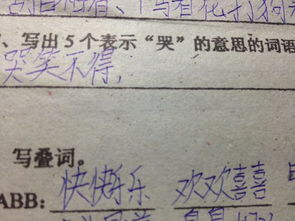 、写出5个表示“哭”的意思的词语
哭笑不得,
写叠词。
ABB: 快快乐乐 欢欢喜喜